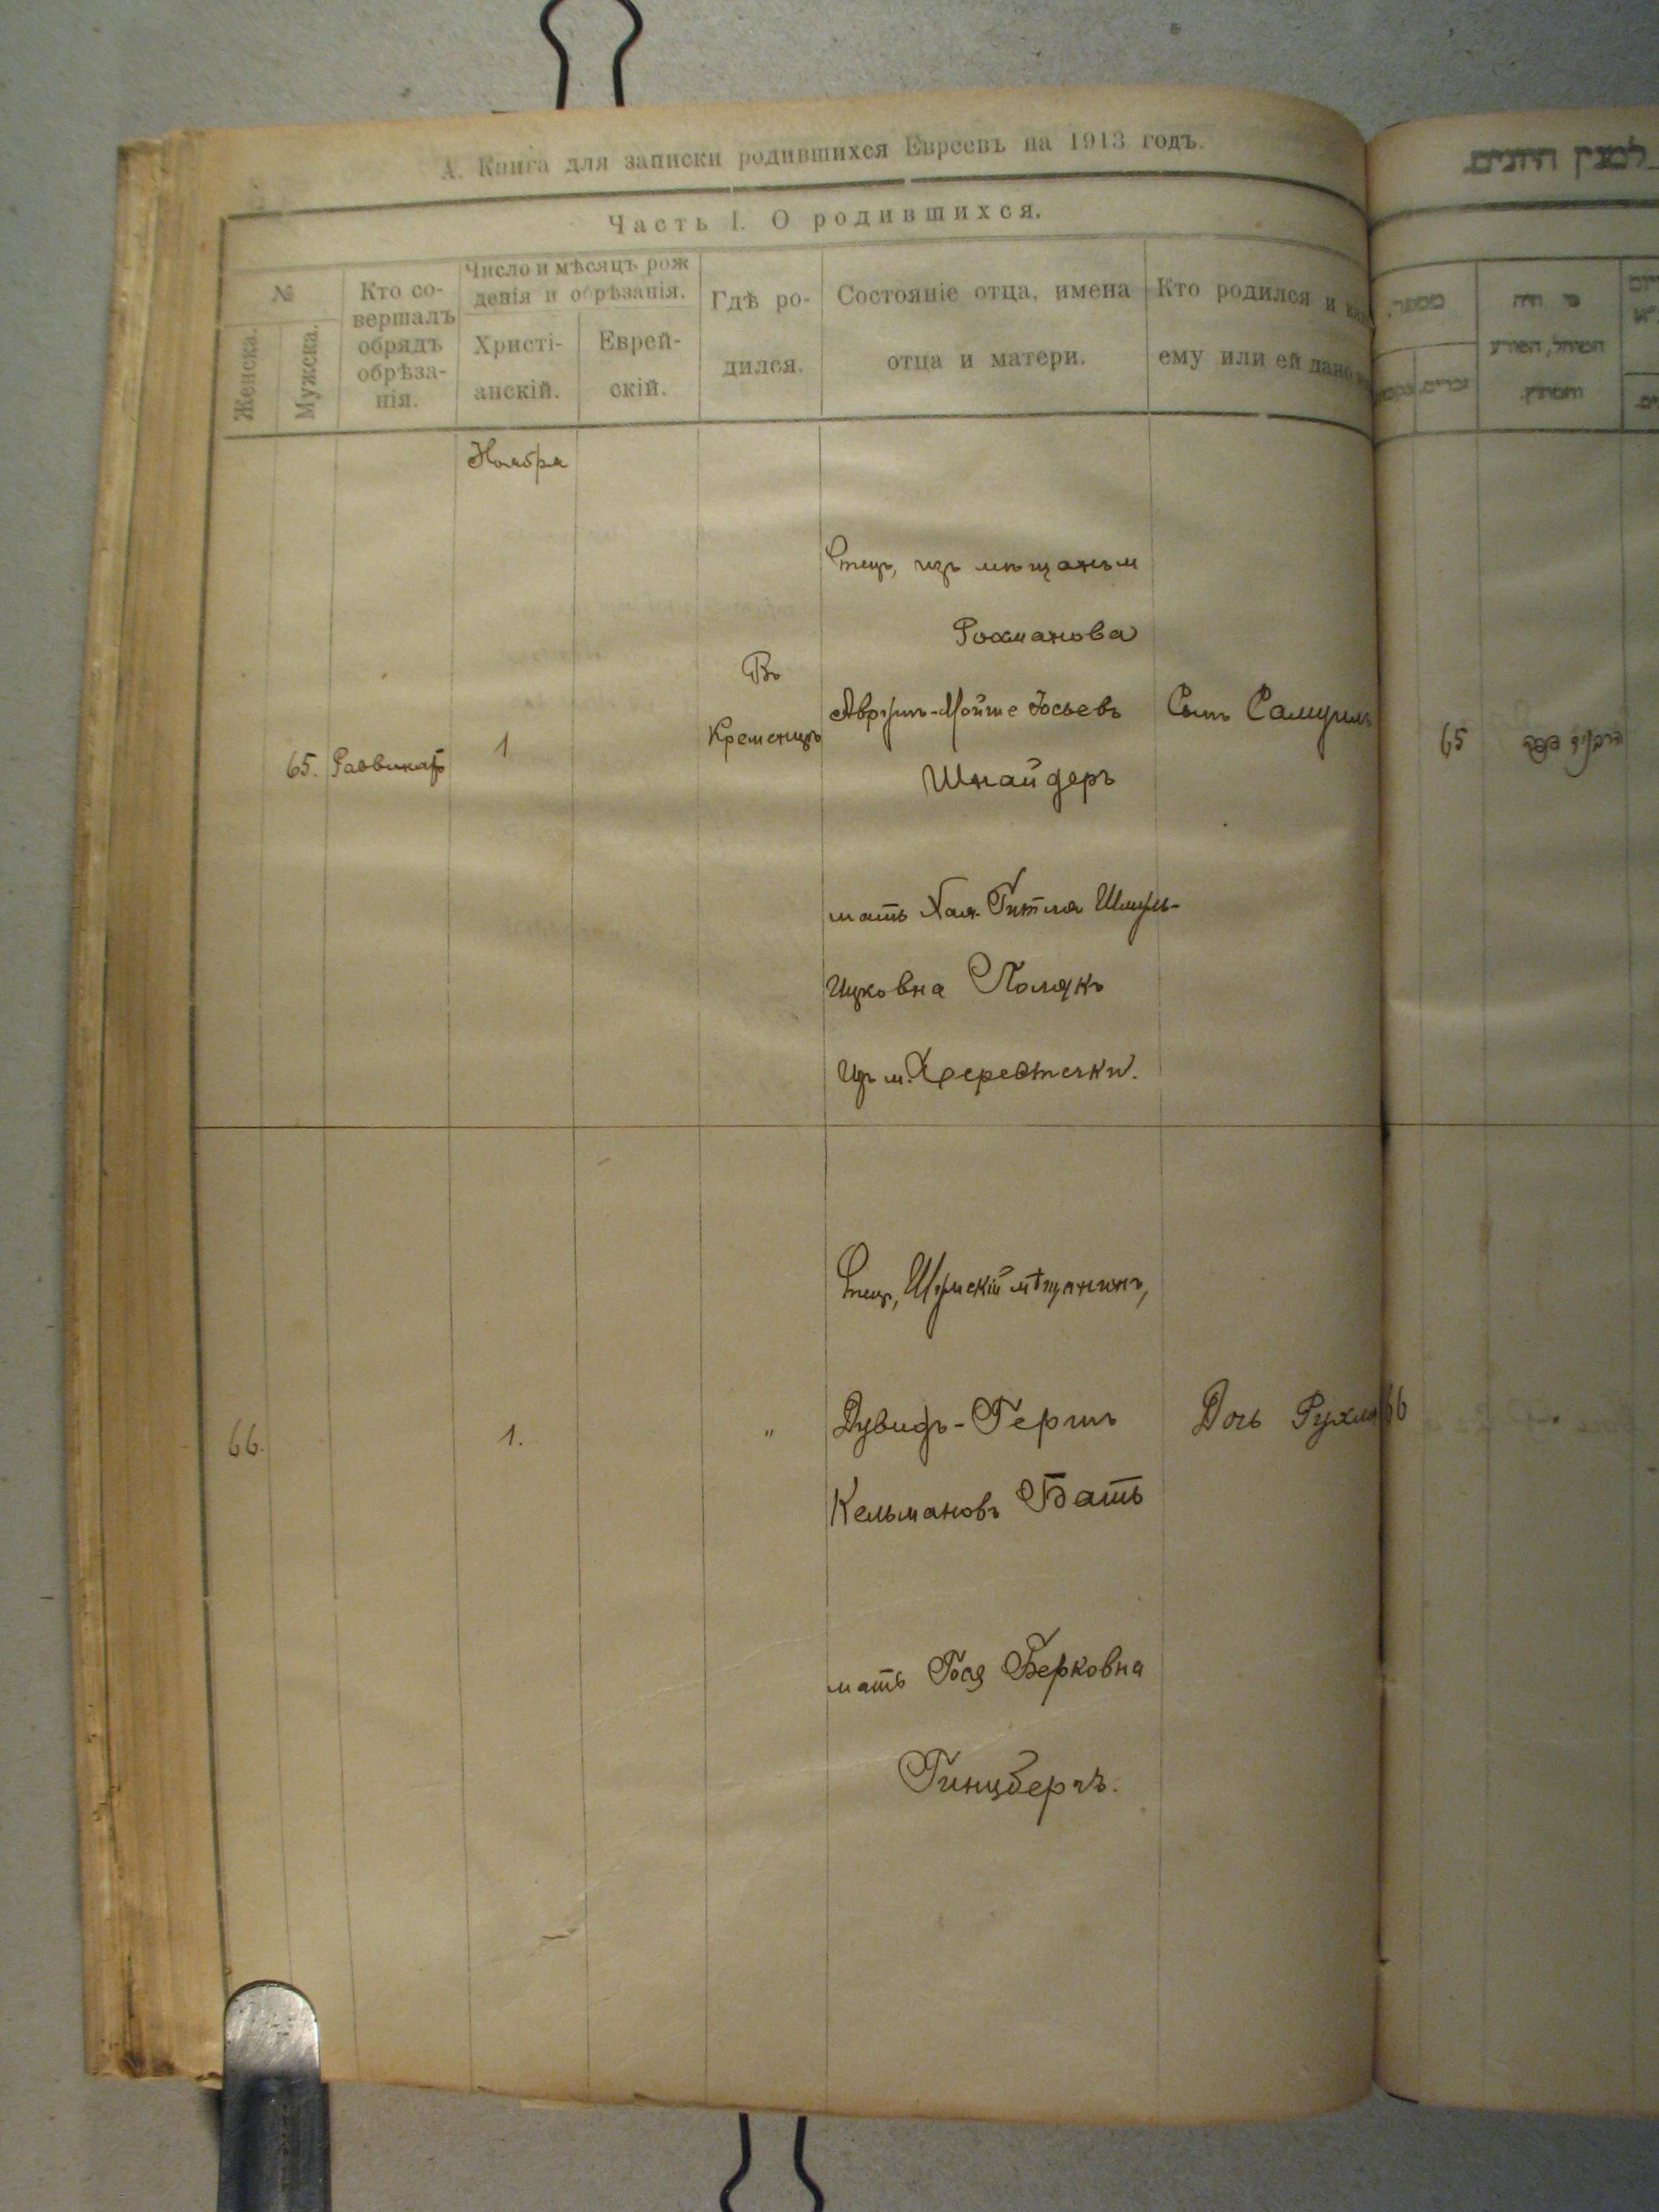 А. Книга для записки родившихся Евреевъ на 1913 годъ.
Часть I. О родившихся.
№
Женска.
Мужска.
Кто со-
вершалъ
обрядъ
обрѣза-
нія.
Число и мѣсяцъ рож
денія и обрѣзанія.
Христі-
анскій.
Еврей-
скій.
Гдѣ ро-
дился.
Состояніе отца, имена
отца и матери.
Кто родился и как
ему или ей дано
Ноября
65.
1
Въ
Кременцѣ
Отецъ, изъ мѣщанъ м
Рохманова
Аврумъ-Мойше Іосьевъ
Шнайдеръ
мать Хая-Гитля Шмуль-
Ицковна Полякъ
изъ м. Берестечки.
Сынъ Самуилъ
66.
1.
"
Отецъ, Шумскій мѣщанинъ,
Дувидъ-Гершъ
Кельмановъ Батъ
мать Бася Берковна
Гинцбергъ.
Дочь Рухля
65
66